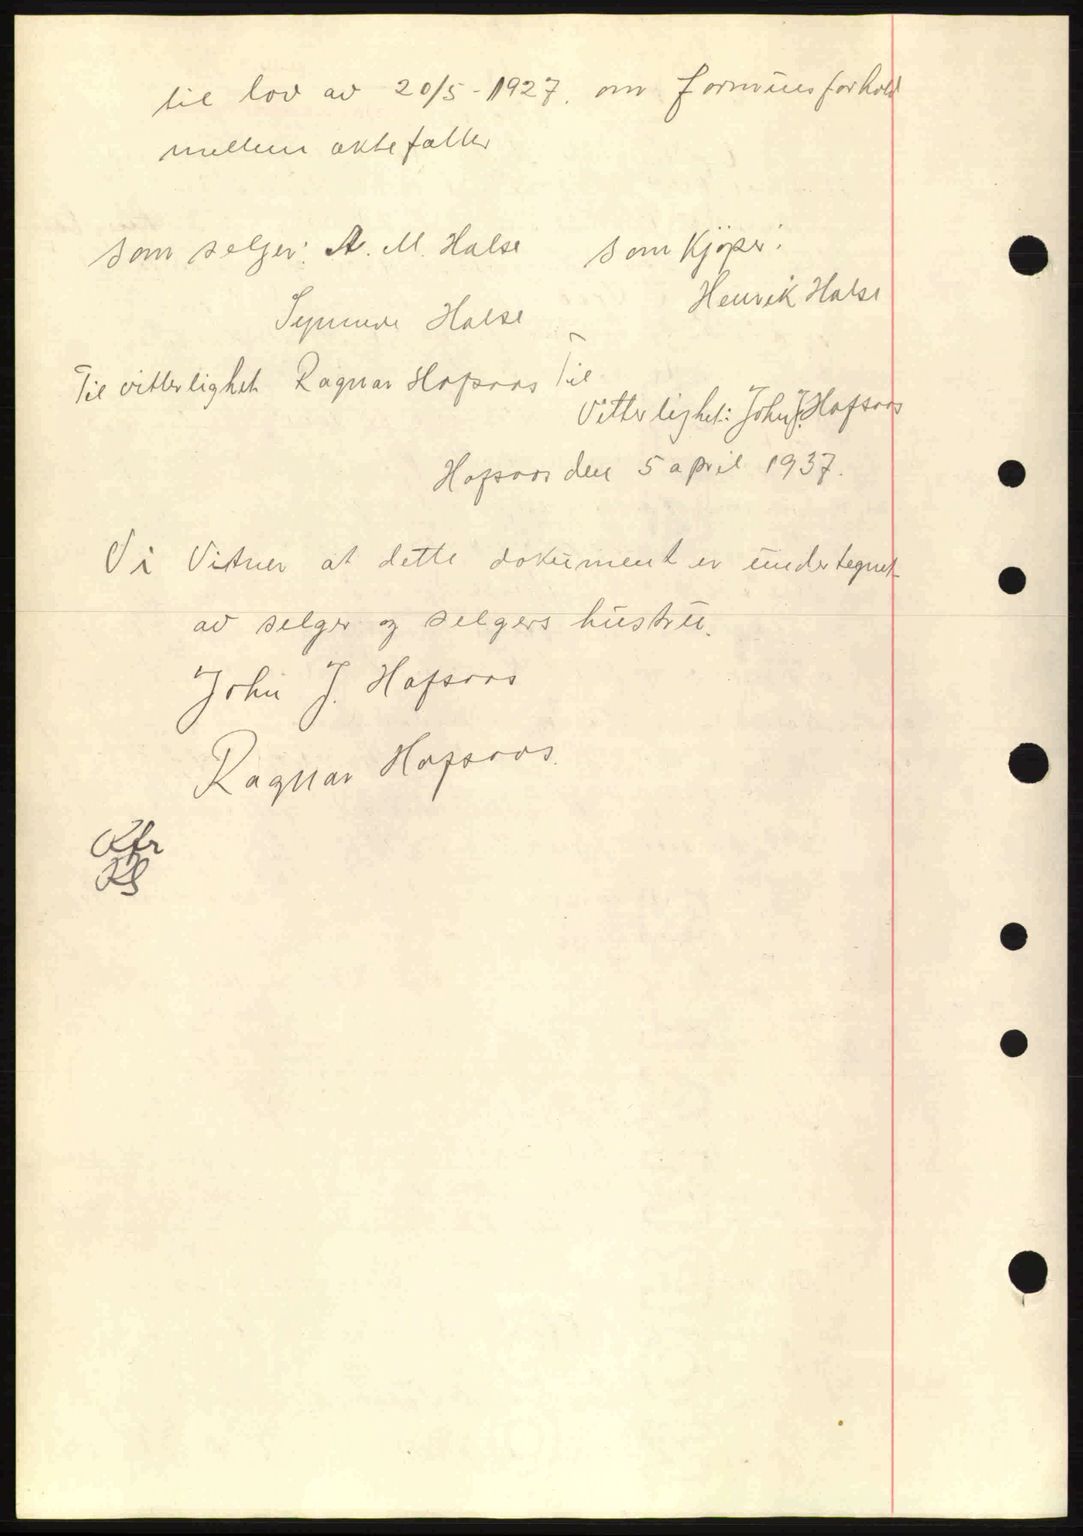 til lov av 20/5-1927. om formuesforhold
mellem æktefæller
som selger: A. M. Halse som Kjöper:
Henrik Halse
Halse
Til vitterlighet Ragnar Hofsaas Til
Vitterlighet: John J. Hofsaas
Hofsaas den 5 april 1937.
Vi Vitner at dette dokument er undertegnet
av selger og selgers hustru.
John J. Hofsaas
Ragnar Hofsaas.